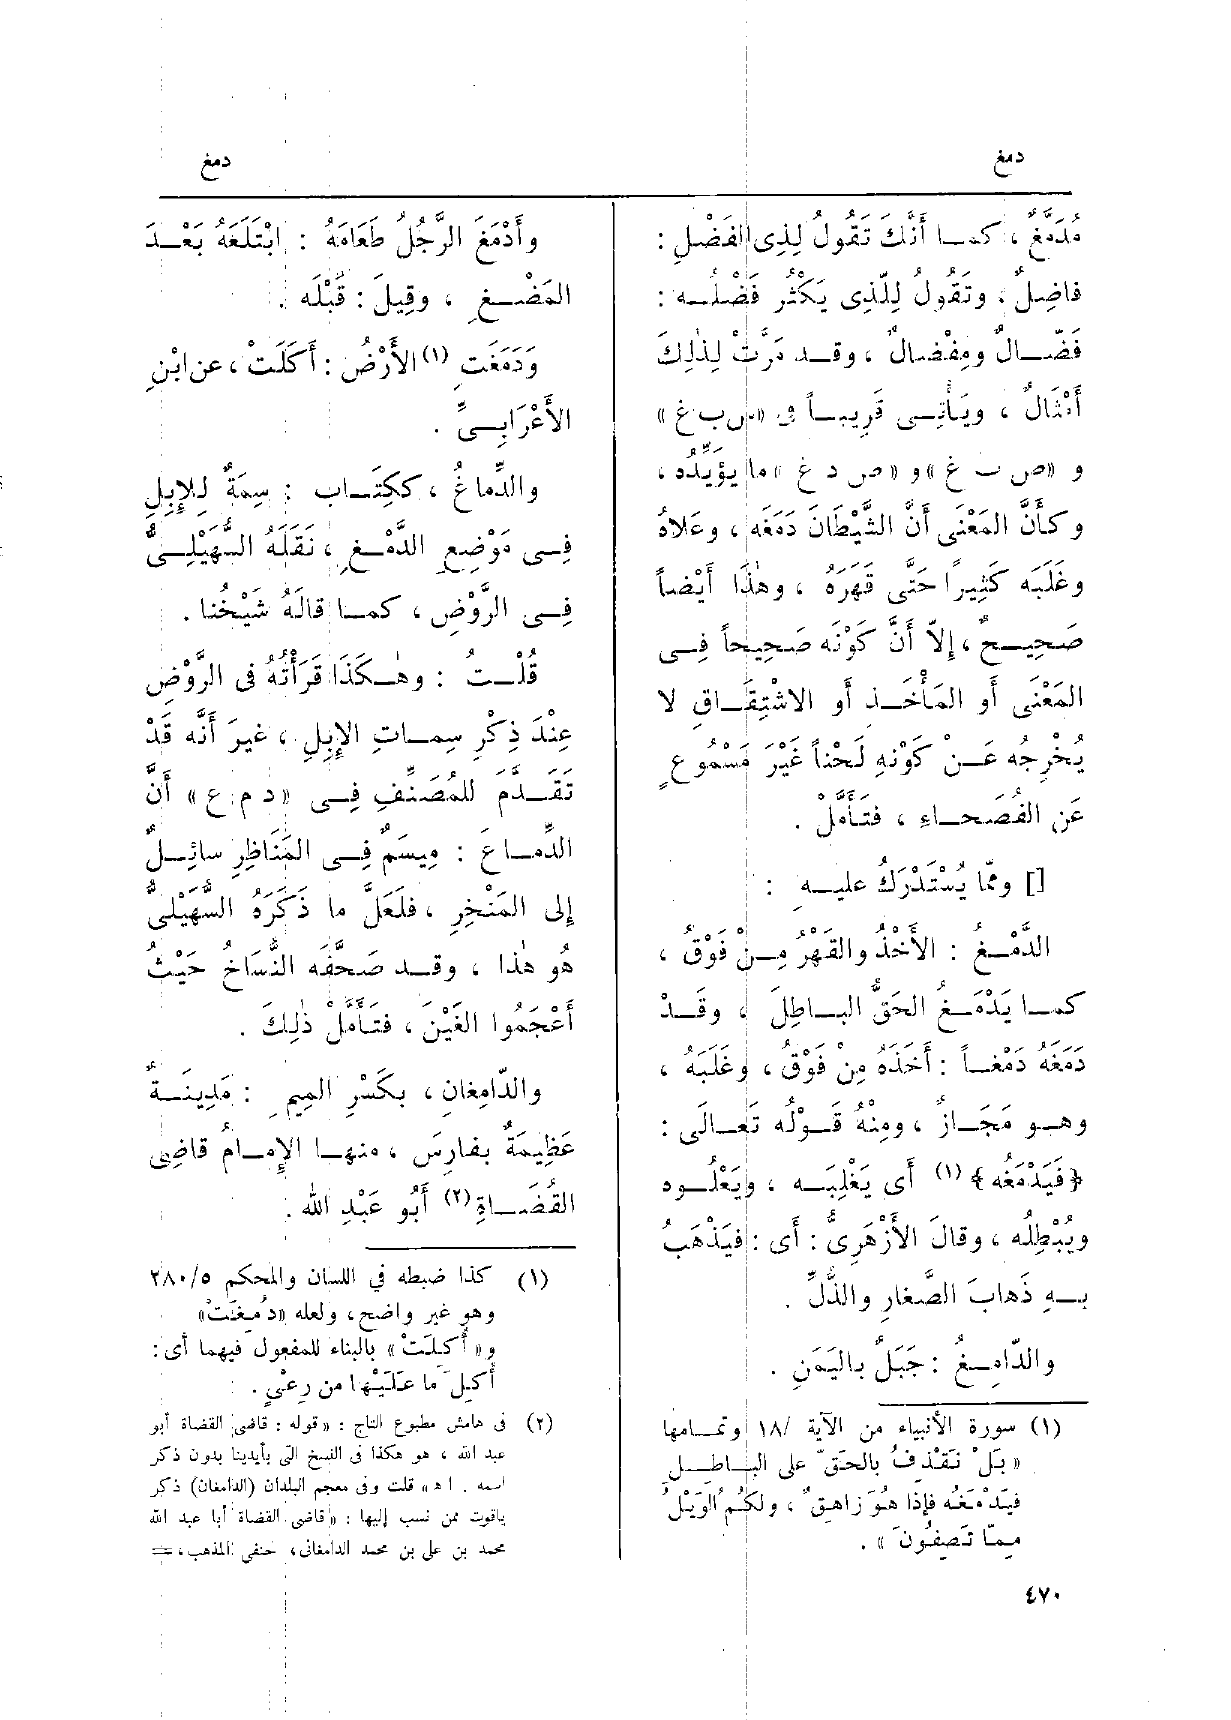 دمغ
دمغ
مُدَمَّغٌ ، كمــا أَنَّكَ تَقُولُ لِذِى الفَضْلِ :
فاضِلٌ ، وتَقُولُ لِلَّذِى يَكْثُر فَضْلُــه :
فَضّــالٌ ومِفْضالٌ ، وقــد مَرَّتْ لِذٰلِكَ
أَمْثالٌ ، ويَأْتِــى قَرِيبــاً فى «س ب غ»
و «ص ب غ» و «ص د غ» ما يؤَيِّدُه ،
وكأَنَّ المَعْنَى أَنَّ الشَّيْطانَ دَمَغَه ، وعَلاهُ
وغَلَبَه كَثِيراً حَتَّى قَهَرَهُ ، وهٰذا أَيْضاً
صَحِيــحٌ ، إِلاّ أَنَّ كَوْنَه صَحِيحاً فِــى
المَعْنَى أَو المَأْخَــذِ أَو الاشْتِقَــاقِ لا
يُخْرِجُه عَــنْ كَوْنِهِ لَحْناً غَيْرَ مَسْمُوعٍ
عَنِ الفُصَحــاءِ ، فتَأَمَّلْ .
[] وممّا يُسْتَدْرَكُ عليــهِ :
الدَّمْــغُ : الأَخْذُ والقَهْرُ مِــنْ فَوْقُ ،
كمــا يَدْمَــغُ الحَقُّ البــاطِلَ ، وقَــدْ
دَمَغَهُ دَمْغــاً : أَخَذَهُ مِنْ فَوْقُ ، وغَلَبَهُ ،
وهــو مَجَــازٌ ، ومِنْهُ قَــوْلُه تَعَــالَى :
﴿فَيَدْمَغُه﴾ (١) أَى يَغْلِبَــه ، ويَعْلُــوه
ويُبْطِلُه ، وقالَ الأَزْهَرِىُّ : أَى : فيَذْهَبُ
بــهِ ذَهابَ الصَّغارِ والذُّلِّ .
والدّامِــغُ : جَبَلٌ باليَمَنِ .
(١) سورة الأنبياء من الآية /١٨ وتمــامها
« بَلْ نَقْذِفُ بالحَقّ على البــاطِــلِ
فيَدْمَغُه فإذا هُوَ زاهِقٌ ، ولكُمُ الوَيْلُ
مِمّا تَصِفُونَ » .
وأَدْمَغَ الرَّجُلُ طَعَامَهُ : ابْتَلَعَهُ بَعْــدَ
المَضْــغِ ، وقِيلَ : قَبْلَه .
ودَمَغَت (١) الأَرْضُ : أَكَلَتْ ، عن ابْنِ
الأَعْرَابِــىِّ .
والدِّماغُ ، كَكِتَــابٍ : سِمَةٌ لِلإِبِلِ
فِــى مَوْضِعِ الدَّمْــغِ ، نَقَلَهُ السُّهَيْلِــىُّ
فِــى الرَّوْضِ ، كمــا قالَهُ شَيْخُنا .
قُلْــتُ : وهٰــكَذَا قَرَأْتُهُ فى الرَّوْضِ
عِنْدَ ذِكْرِ سِمــاتِ الإِبِلِ ، غيرَ أَنَّه قَدْ
تَقَــدَّمَ للمُصَنِّفِ فِــى «د م ع» أَنَّ
الدِّمــاعَ : مِيسَمٌ فِــى المَنَاظِرِ سائِــلٌ
إلى المَنْخِرِ ، فلَعَلَّ ما ذَكَرَهُ السُّهَيْلِىُّ
هُو هٰذا ، وقــد صَحَّفَه النُّسّاخُ حَيْثُ
أَعْجَمُوا الغَيْنَ ، فتَأَمَّلْ ذٰلِكَ .
والدّامِغانِ ، بكَسْرِ المِيمِ : مَدِينَــةٌ
عَظِيمَةٌ بفارِسَ ، منهــا الإِمــامُ قاضِى
القُضَــاةِ (٢) أَبُو عَبْدِ الله .
(١) كذا ضبطه في اللسان والمحكم ٢٨٠/٥
وهو غير واضح ، ولعله «دُمِغَتْ»
و« أُكِلَتْ » بالبناء للمفعول فيهما أى :
أُكِلَ ما عَلَيْها من رِعْيٍ .
(٢) فى هامش مطبوع التاج : «قوله : قاضى القضاة أبو
عبد الله ، هو هكذا فى النسخ التى بأيدينا بدون ذكر
اسمه . اه» قلت وفى معجم البلدان (الدامغان) ذكر
ياقوت ممن نسب إليها : «قاضى القضاة أبا عبد الله
محمد بن على بن محمد الدامغانى ، حنفى المذهب ، =
٤٧٠